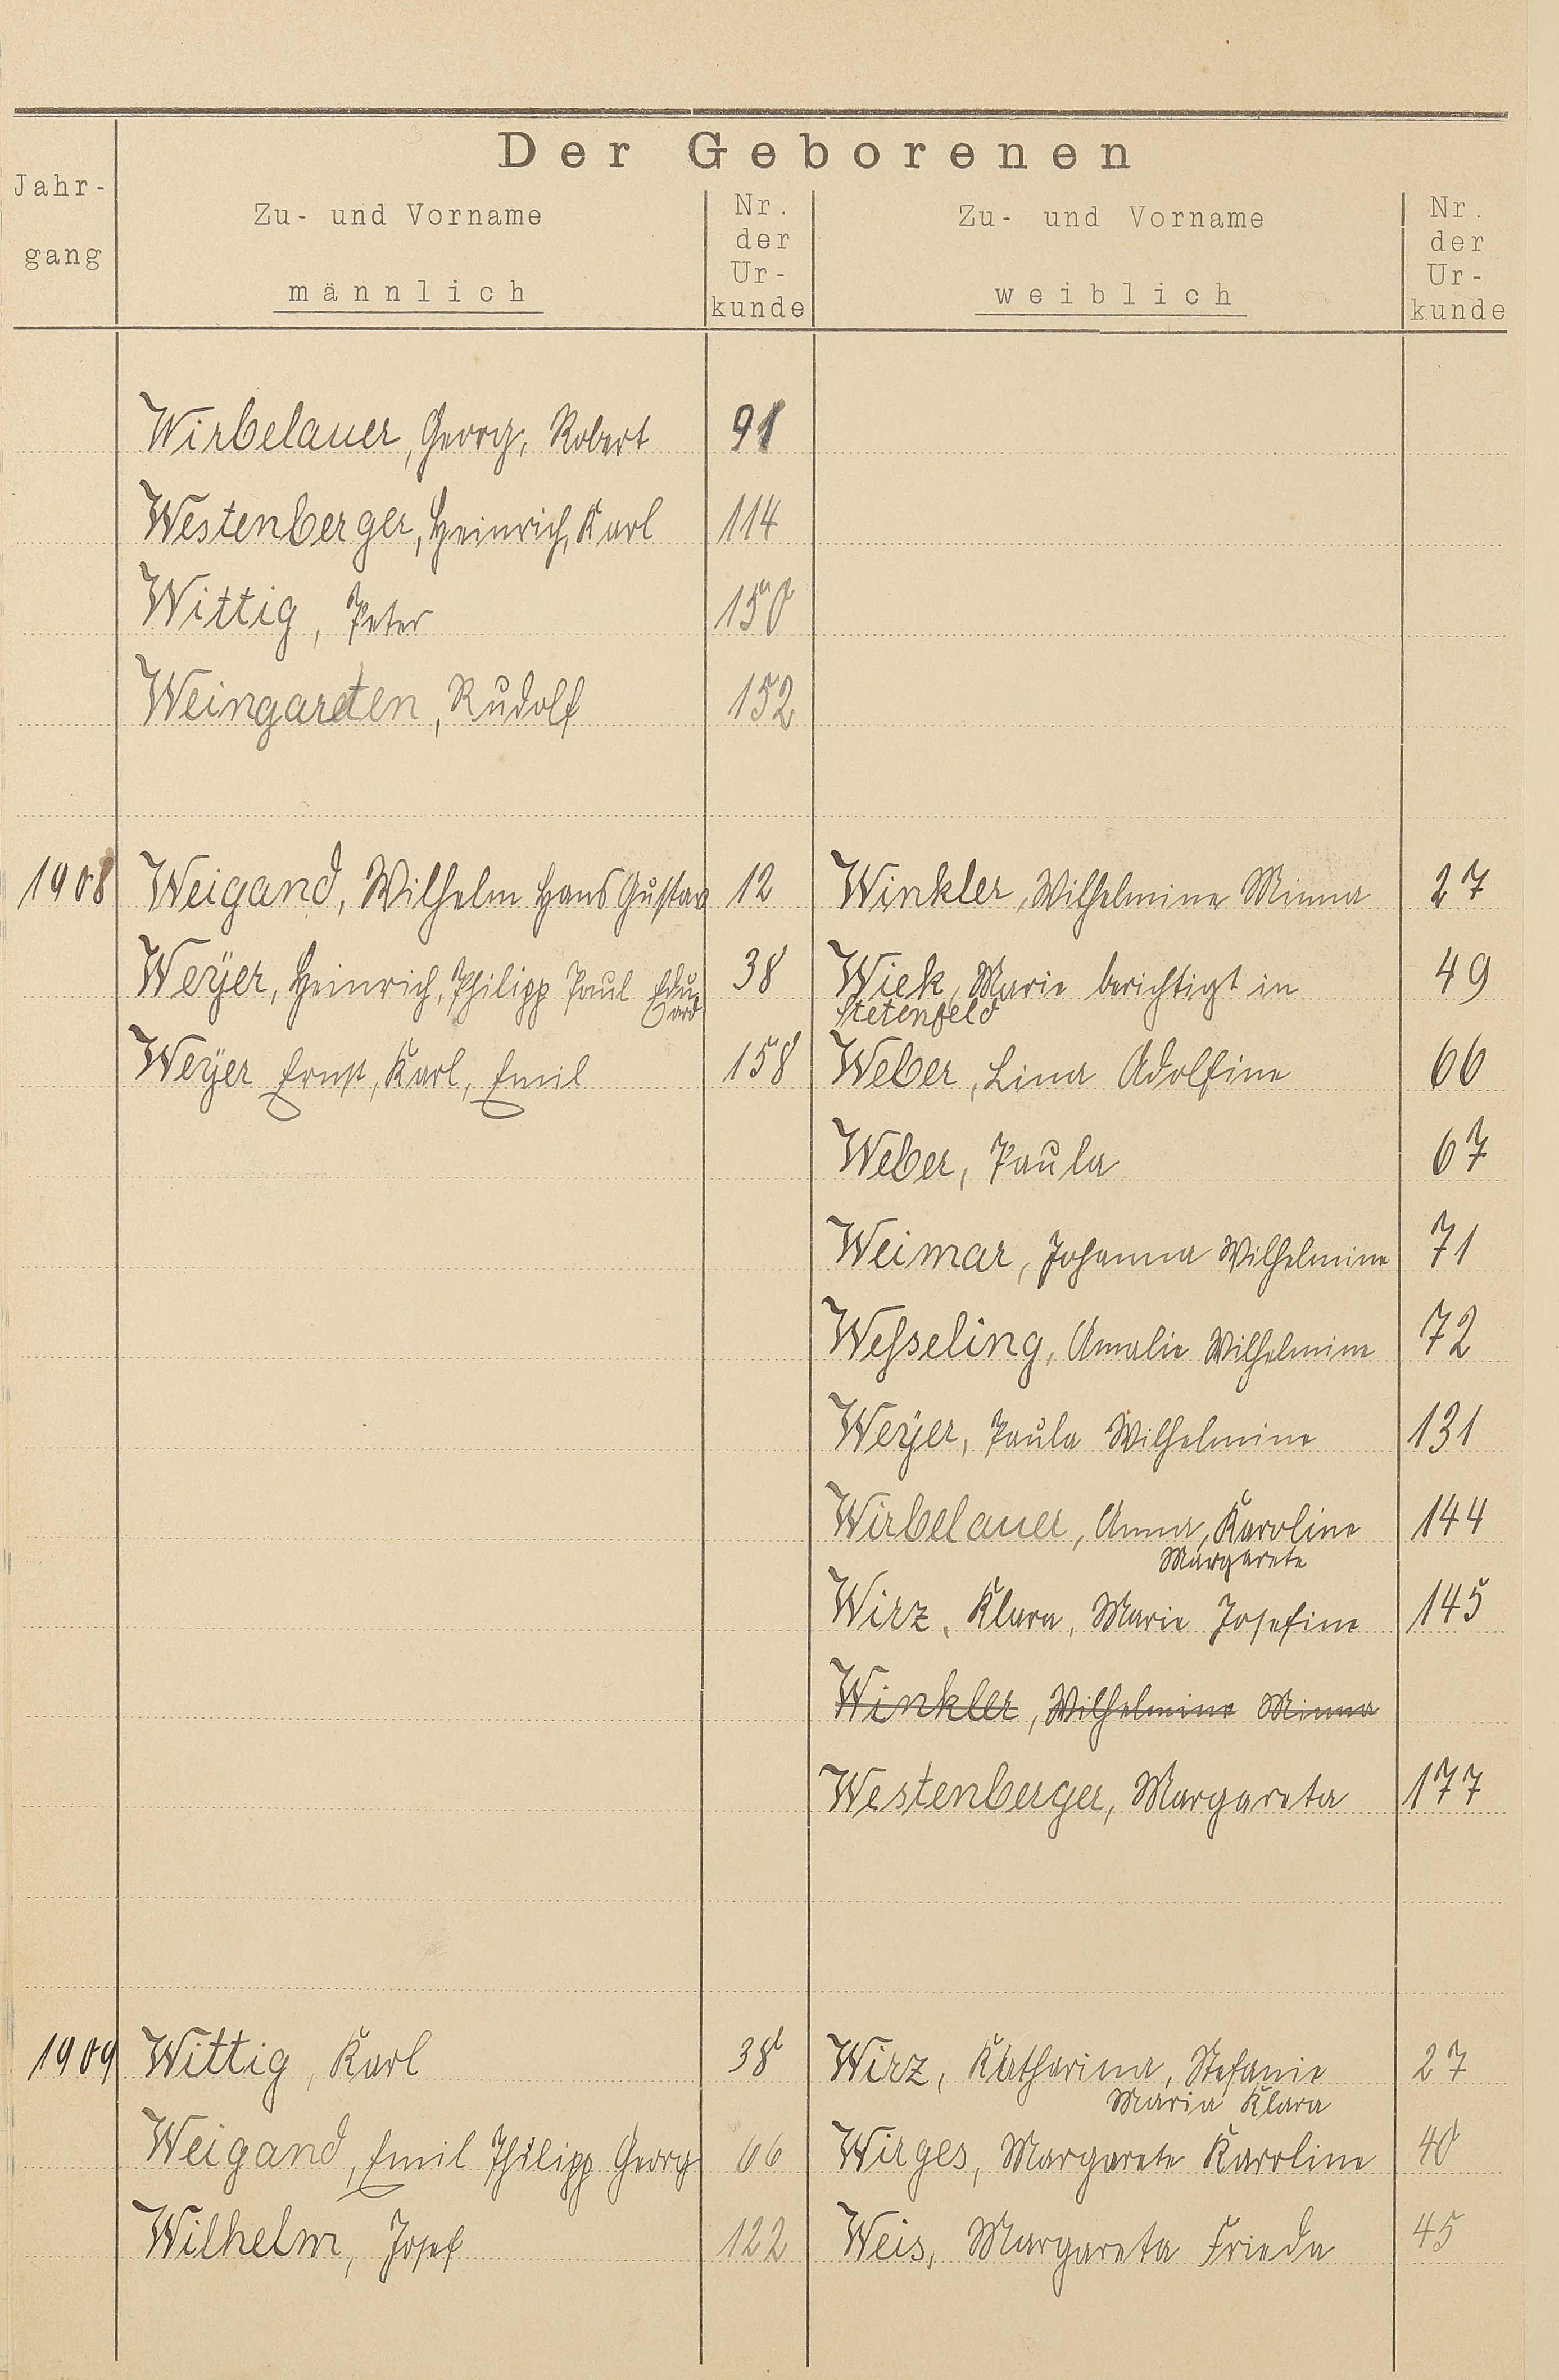 Der Geborenen
Jahr-
gang
Zu- und Vorname
männlich
Nr.
der
Ur-
kunde
Zu- und Vorname
weiblich
Nr.
der
Ur-
kunde
Wirbelauer, Georg, Robert 91
Westenberger, Heinrich, Karl 114
Wittig, Peter 150
Weingarten, Rudolf 152
1908 Weigand, Wilhelm Hans Gustav 12 Winkler, Wilhelmine Minna 27
Weÿer, Heinrich, Philipp Paul Edu= 38 Wiek, Marie berichtigt in 49
ard Stetenfeld
Weÿer Ernst, Karl, Emil 158 Weber, Lina Adolfine 66
Weber, Paula 67
Weimar, Johanna Wilhelmine 71
Weſseling, Amalie Wilhelmine 72
Weÿer, Paula Wilhelmine 131
Wirbelauer, Anna, Karoline 144
Margarete
Wirz, Klara, Marie Josefine 145
Winkler, Wilhelmine Minna
Westenberger, Margareta 177
1909 Wittig, Karl 38 Wirz, Katharina, Stefanie 27
Maria Klara
Weigand, Emil Philipp Georg 66 Wirges, Margarete Karoline 40
Wilhelm, Josef 122 Weis, Margareta Frieda 45